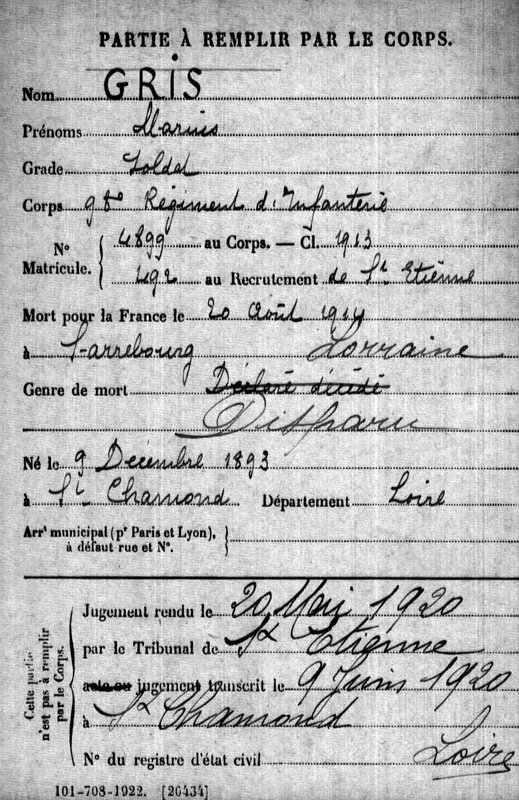 PARTIE À REMPLIR PAR LE CORPS.
Nom GRIS
Prénoms Marius
Grade Soldat
Corps 98e Régiment d'Infanterie
N° Matricule. 4899 au Corps. — Cl. 1913
492 au Recrutement de St Etienne
Mort pour la France le 20 Août 1914
à Sarrebourg Lorraine
Genre de mort Déclaré décédé
Disparu
Né le 9 Décembre 1893
à St Chamond Département Loire
Arrt municipal (pr Paris et Lyon),
à défaut rue et N°.
Cette partie n'est pas à remplir par le Corps.
Jugement rendu le 20 Mai 1920
par le Tribunal de St Etienne
acte ou jugement transcrit le 9 Juin 1920
à St Chamond
N° du registre d'état civil Loire
101-708-1922. [26434]